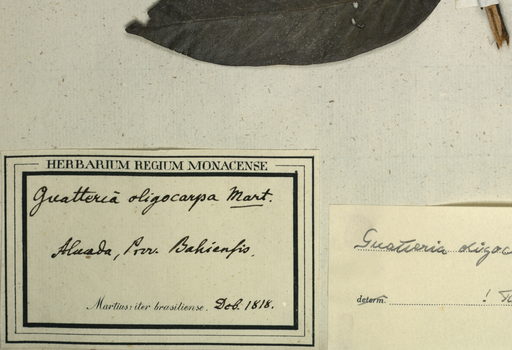 HERBARIUM REGIUM MONACENSE
Guatteria oligocarpa Mart.
Almada, Prov. Bahiensis.
Martius: iter brasiliense. Dcb. 1818.
Guatteria oligoc
determ. !